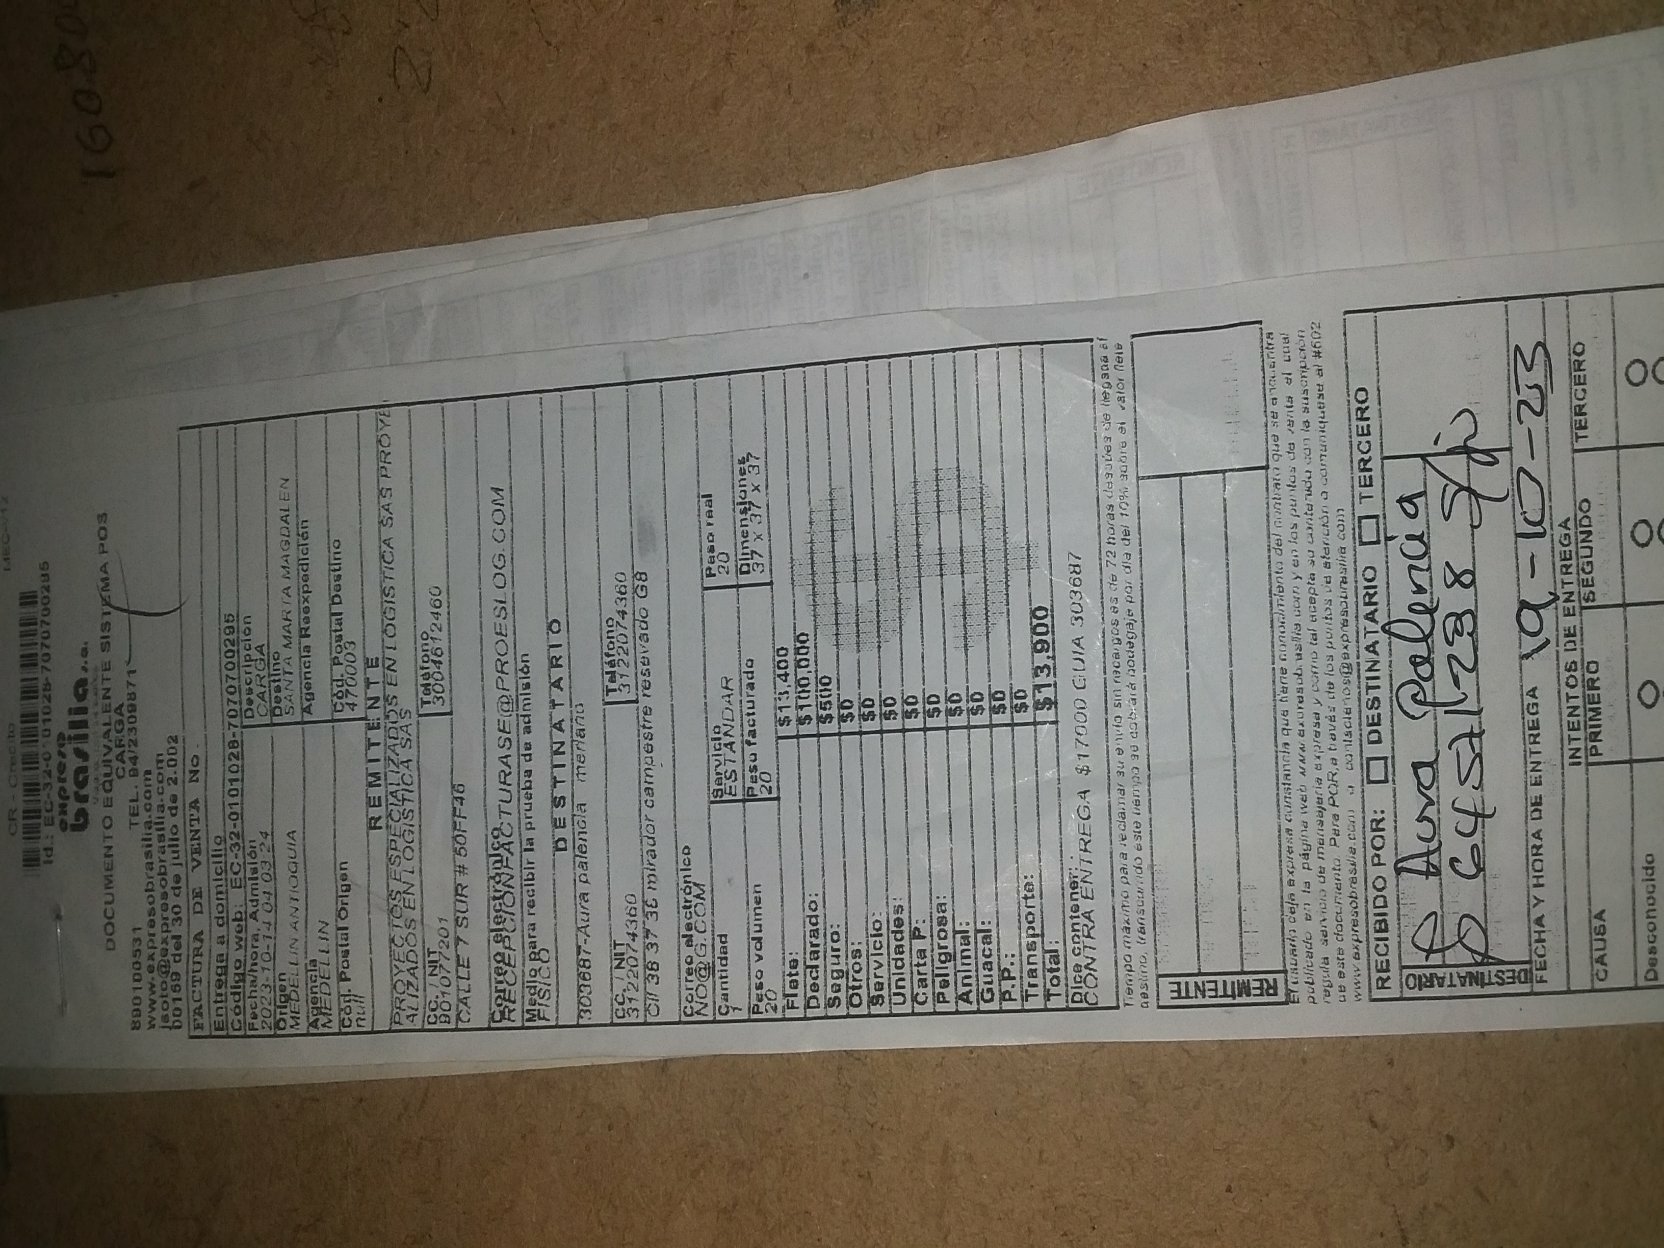 Id.: EC-32-0101028-7070700295
expreso
brasilia s.a.
DOCUMENTO EQUIVALENTE SISTEMA POS
CARGA
890100531 TEL. 94/2309871
www.expresobrasilia.com
jsoto@expresobrasilia.com
00169 del 30 de julio de 2.002
FACTURA DE VENTA No.
Entrega a domicilio
Código web: EC-32-0101028-7070700295
Fecha/hora, Admisión Descripción
2023-10-14 04 03 24 CARGA
Origen Destino
MEDELLIN ANTIOQUIA SANTA MARTA MAGDALEN
Agencia Agencia Reexpedición
MEDELLIN
Cód. Postal Origen Cód. Postal Destino
null 470003
REMITENTE
PROYECTOS ESPECIALIZADOS EN LOGISTICA SAS PROYE
ALIZADOS EN LOGISTICA SAS
CC. / NIT Teléfono
9010777201 3004612460
CALLE 7 SUR # 50FF46
Correo electrónico
RECEPCIONFACTURASE@PROESLOG.COM
Medio para recibir la prueba de admisión
FISICO
DESTINATARIO
303687-Aura palencia meriano
CC. / NIT Teléfono
3122074360 3122074360
Cll 36 37 36 mirador campestre resevado G8
Correo electrónico
NO@G.COM
Cantidad Servicio Peso real
1 ESTANDAR 20
Peso volumen Peso facturado Dimensiones
20 20 37 x 37 x 37
Flete: $13,400
Declarado: $100,000
Seguro: $500
Otros: $0
Servicio: $0
Unidades: $0
Carta P: $0
Peligrosa: $0
Animal: $0
Guacal: $0
P.P.: $0
Transporte: $0
Total: $13,900
Dice contener:
CONTRA ENTREGA $17000 GUIA 303687
Tiempo máximo para reclamar su envío sin recargos es de 72 horas después de llegada al
destino, transcurrido este tiempo se cobrará bodegaje por día del 10% sobre el valor flete
REMITENTE
El usuario deja expresa constancia que tiene conocimiento del contrato que se encuentra
publicado en la página web www.expresobrasilia.com y en los puntos de venta el cual
regula servicio de mensajería expresa y como tal acepta su contenido con la suscripción
de este documento. Para PQR, a través de los puntos de atención o comuníquese al #602
RECIBIDO POR: DESTINATARIO TERCERO
DESTINATARIO
Aura Palencia
FECHA Y HORA DE ENTREGA 19-10-23
INTENTOS DE ENTREGA
CAUSA PRIMERO SEGUNDO TERCERO
Desconocido